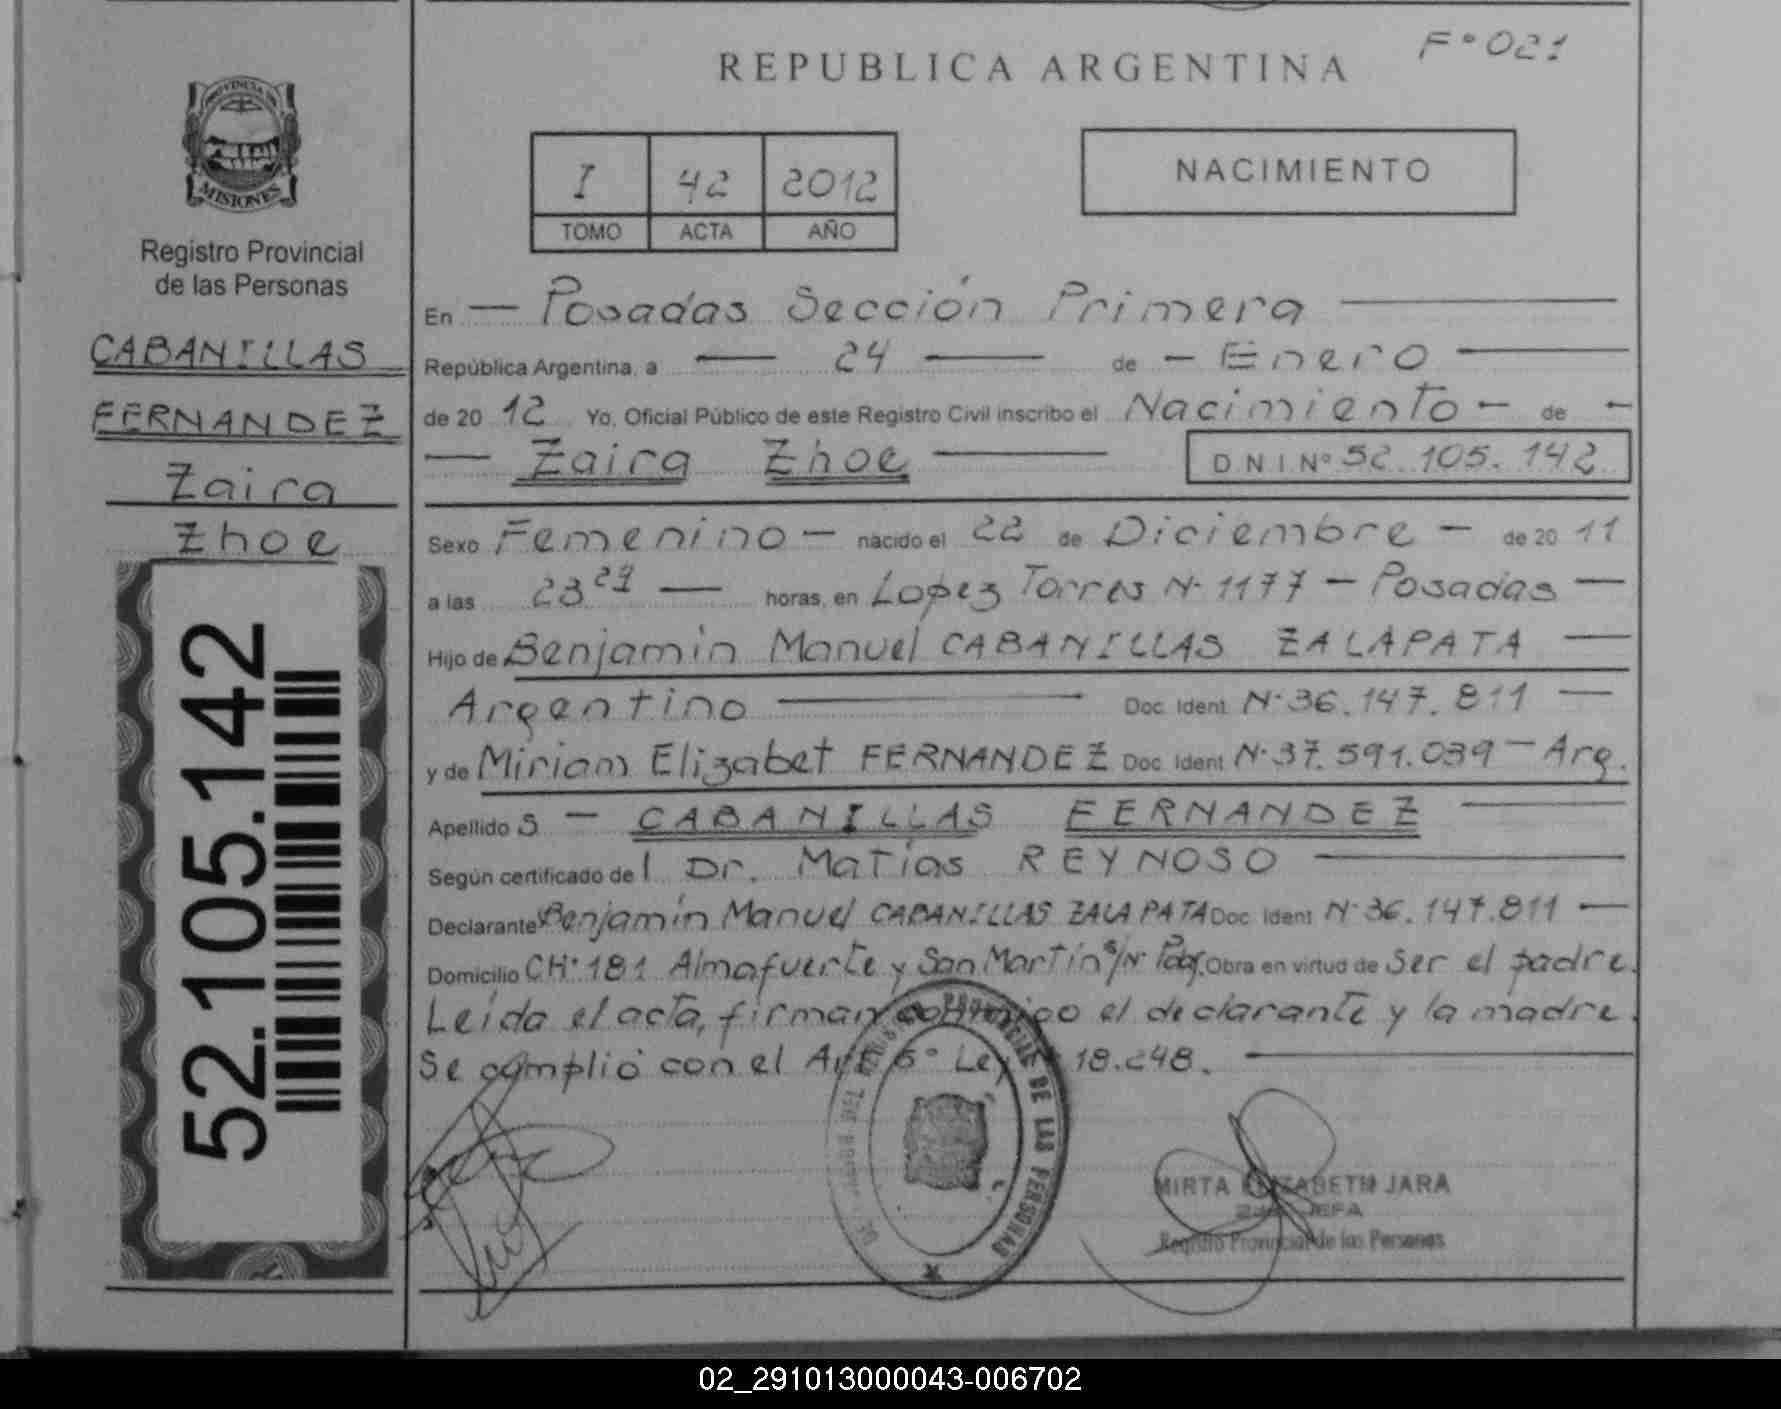 F° 021
REPUBLICA ARGENTINA
PROVINCIA DE
MISIONES
Registro Provincial
de las Personas
CABANILLAS
FERNANDEZ
Zaira
Zhoe
52.105.142
I 42 2012
TOMO ACTA AÑO
NACIMIENTO
En — Posadas Sección Primera —
República Argentina, a — 24 — de — Enero —
de 20 12 Yo, Oficial Público de este Registro Civil inscribo el Nacimiento — de —
— Zaira Zhoe — DNI N° 52.105.142
Sexo Femenino — nacido el 22 de Diciembre — de 20 11
a las 23 27 — horas, en Lopez Torres N° 1177 — Posadas —
Hijo de Benjamín Manuel CABANILLAS ZALAPATA —
Argentino — Doc. Ident. N° 36.147.811 —
y de Miriam Elizabet FERNANDEZ Doc. Ident. N° 37.591.039 — Arg.
Apellido s — CABANILLAS FERNANDEZ —
Según certificado de l Dr. Matías REYNOSO —
Declarante Benjamín Manuel CABANILLAS ZALAPATA Doc. Ident. N° 36.147.811 —
Domicilio CH° 181 Almafuerte y San Martín s/N° Pdas. Obra en virtud de Ser el padre.
Leída el acta, firman conmigo el declarante y la madre.
Se complió con el Art. 5° Ley N° 18.248. —
REGISTRO PROVINCIAL DE LAS PERSONAS
MIRTA ELIZABETH JARA
2da. JEFA
Registro Provincial de las Personas
02_291013000043-006702